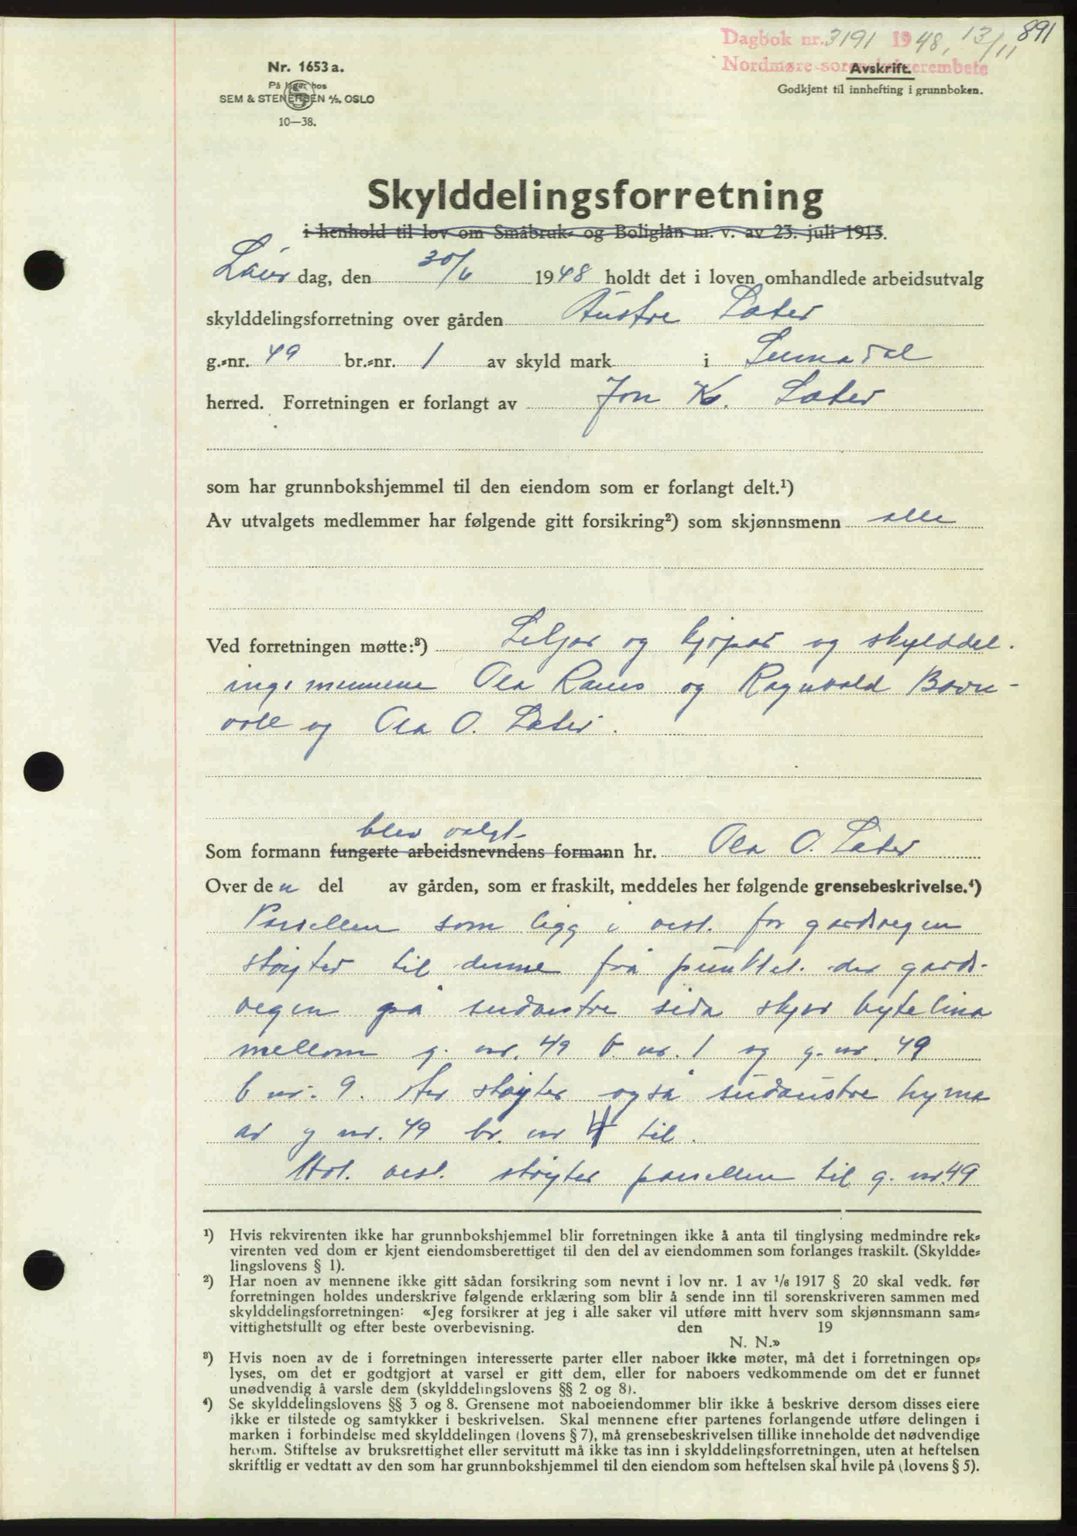 891
Dagbok nr. 3191 1948, 13/11
Nordmøre sorenskriverembete
Nr. 1653 a.
På lager hos
SEM & STENERSEN A/S, OSLO
10—38.
Avskrift.
Godkjent til innhefting i grunnboken.
Skylddelingsforretning
i henhold til lov om Småbruk- og Boliglån m. v. av 23. juli 1915.
Laur dag, den 30/6 1948 holdt det i loven omhandlede arbeidsutvalg
skylddelingsforretning over gården Austre Sæter
g.-nr. 49 br.-nr. 1 av skyld mark i Surnadal
herred. Forretningen er forlangt av Jon K. Sæter
som har grunnbokshjemmel til den eiendom som er forlangt delt.¹)
Av utvalgets medlemmer har følgende gitt forsikring²) som skjønnsmenn alle
Ved forretningen møtte:³) Seljar og kjøpar og skylddel.
ings mennene Ola Ranes og Ragnvald Bævr-
voll og Ola O. Sæter.
blev valgt
Som formann fungerte arbeidsnevndens formann hr. Ola O. Sæter
Over den del av gården, som er fraskilt, meddeles her følgende grensebeskrivelse.⁴)
Parsellen som ligg i vest for gardsvegen
støyter til denne frå punktet der gards-
vegen på sudaustre sida skjer bytelina
mellom g. nr. 49 b nr. 1 og g. nr. 49
b nr. 9. Her støyter også sudaustre hyrna
av g nr. 49 br. nr 4 til.
Mot vest støyter parsellen til g. nr. 49
¹) Hvis rekvirenten ikke har grunnbokshjemmel blir forretningen ikke å anta til tinglysing medmindre rek-
virenten ved dom er kjent eiendomsberettiget til den del av eiendommen som forlanges fraskilt. (Skyldde-
lingslovens § 1).
²) Har noen av mennene ikke gitt sådan forsikring som nevnt i lov nr. 1 av 1/6 1917 § 20 skal vedk. før
forretningen holdes underskrive følgende erklæring som blir å sende inn til sorenskriveren sammen med
skylddelingsforretningen: «Jeg forsikrer at jeg i alle saker vil utføre mitt hverv som skjønnsmann sam-
vittighetsfullt og efter beste overbevisning. den 19
N. N.»
³) Hvis noen av de i forretningen interesserte parter eller naboer ikke møter, må det i forretningen op-
lyses, om det er godtgjort at varsel er gitt dem, eller for naboers vedkommende om det er funnet
unødvendig å varsle dem (skylddelingslovens §§ 2 og 8).
⁴) Se skylddelingslovens §§ 3 og 8. Grensene mot naboeiendommer blir ikke å beskrive dersom disses eiere
ikke er tilstede og samtykker i beskrivelsen. Skal mennene efter partenes forlangende utføre delingen i
marken i forbindelse med skylddelingen (lovens § 7), må grensebeskrivelsen tillike inneholde det nødvendige
herom. Stiftelse av bruksrettighet eller servitutt må ikke tas inn i skylddelingsforretningen, uten at heftelsen
skriftlig er vedtatt av den som har grunnbokshjemmel til den eiendom som heftelsen skal hvile på (lovens § 5).